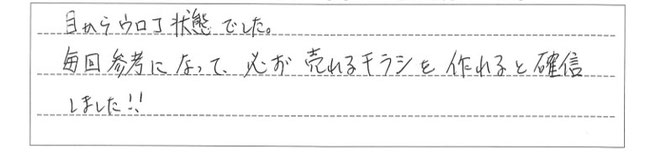 目からウロコ状態でした。
毎回参考になって、必ず売れるチラシを作れると確信
しました!!